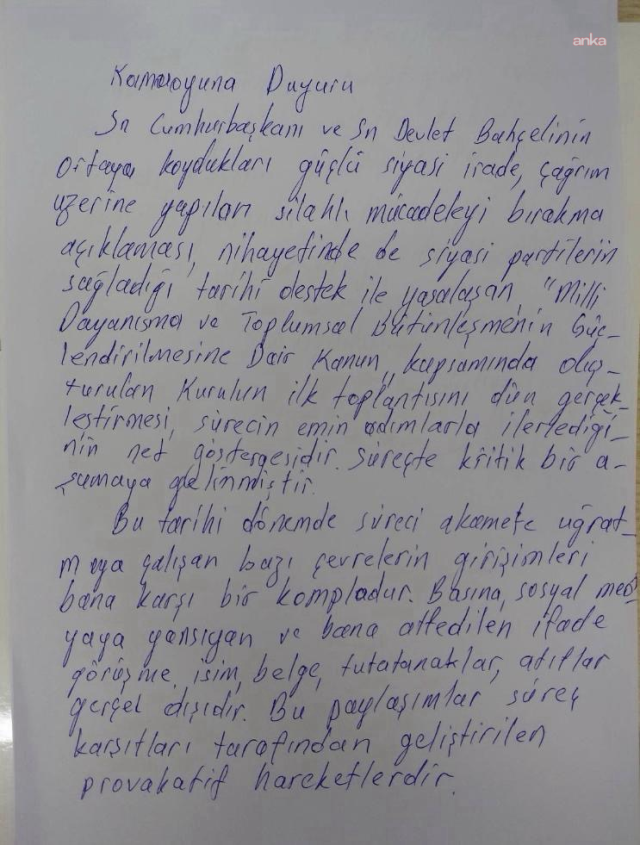 anka
Kamuoyuna Duyuru
Sn Cumhurbaşkanı ve Sn Devlet Bahçelinin
ortaya koydukları güçlü siyasi irade, çağrım
üzerine yapılan silahlı mücadeleyi bırakma
açıklaması, nihayetinde de siyasi partilerin
sağladığı tarihi destek ile yasalaşan, "Milli
Dayanışma ve Toplumsal Bütünleşmenin Güç-
lendirilmesine Dair Kanun,, kapsamında oluş-
turulan Kurulun ilk toplantısını dün gerçek-
leştirmesi, sürecin emin adımlarla ilerlediği-
nin net göstergesidir. Süreçte kritik bir a-
şamaya gelinmiştir.
Bu tarihi dönemde süreci akamete uğrat-
maya çalışan bazı çevrelerin girişimleri
bana karşı bir kompladur. Basına, sosyal med-
yaya yansıyan ve bana atfedilen ifade
görüşme, isim, belge, tutatanaklar, atıflar
gerçek dışıdır. Bu paylaşımlar süreç
karşıtları tarafından geliştirilen
provakatif hareketlerdir.